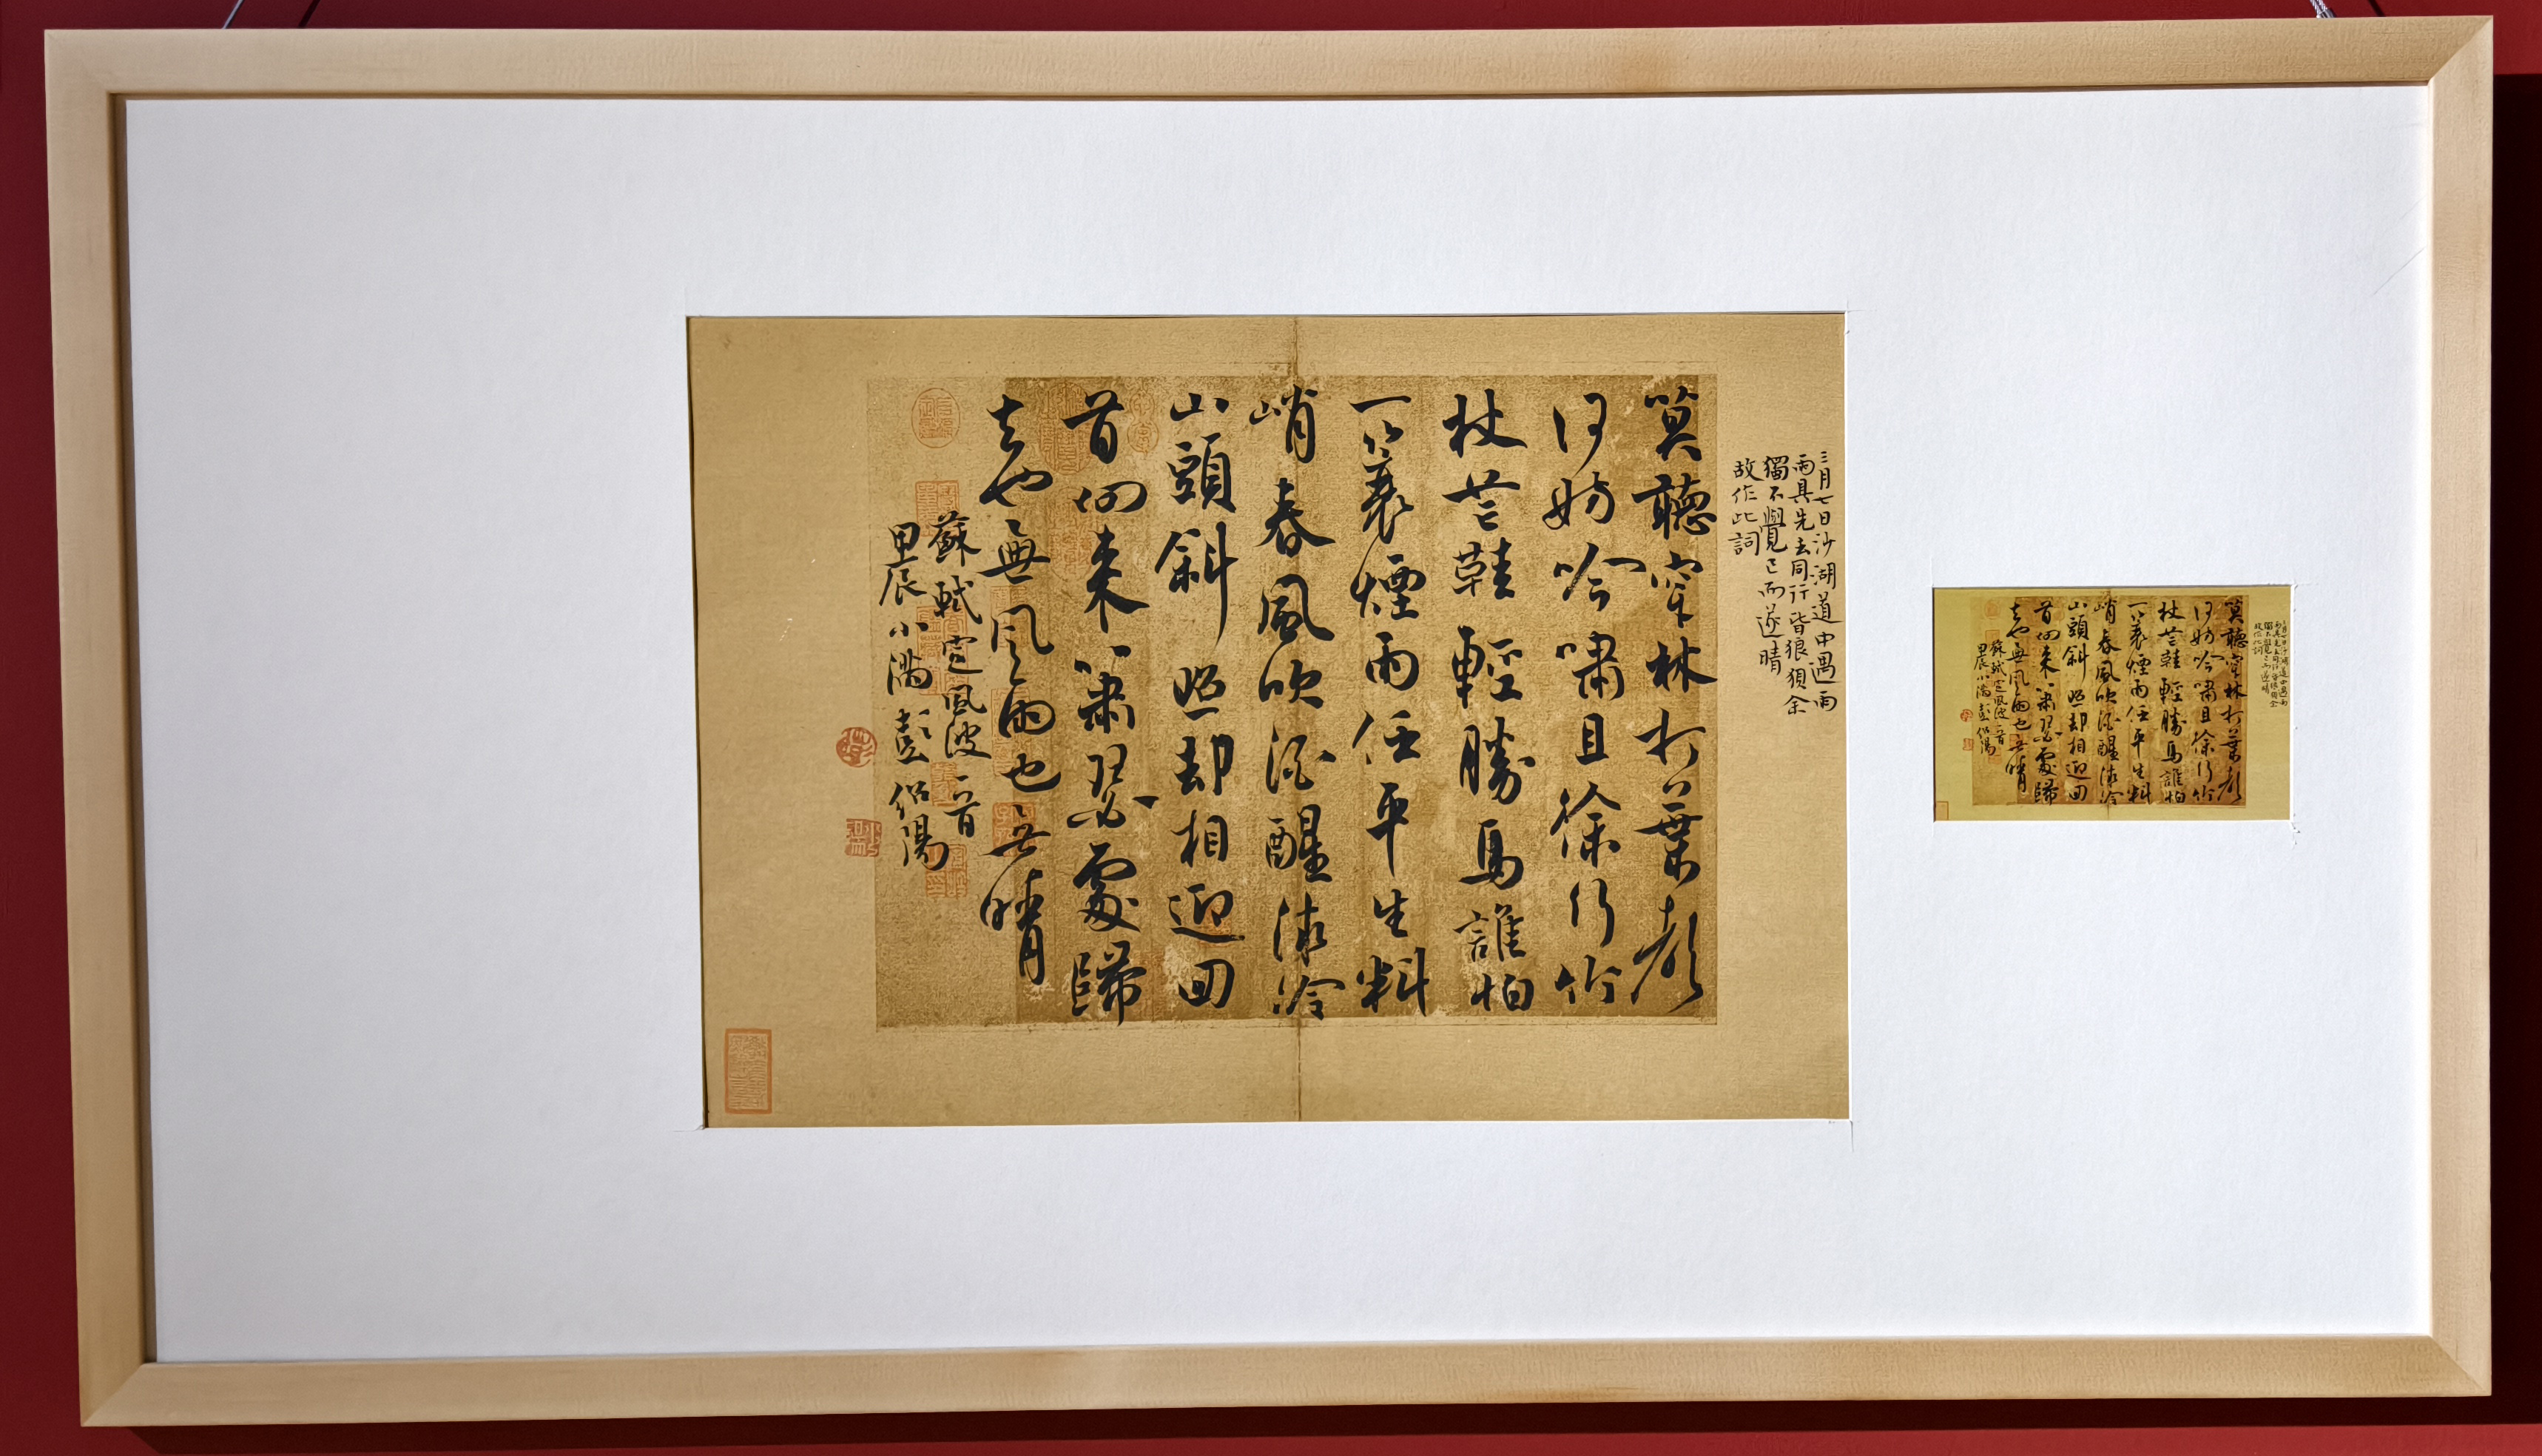 三月七日沙湖道中遇雨
雨具先去同行皆狼狽余
獨不覺已而遂晴
故作此詞
莫聽穿林打葉聲
何妨吟嘯且徐行竹
杖芒鞋輕勝馬誰怕
一蓑煙雨任平生料
峭春風吹酒醒微冷
山頭斜照却相迎回
首向來蕭瑟處歸
去也無風雨也无晴
蘇軾定風波一首
甲辰小滿彭紹陽
三月七日沙湖道中遇雨
雨具先去同行皆狼狽余
獨不覺已而遂晴
故作此詞
莫聽穿林打葉聲
何妨吟嘯且徐行竹
杖芒鞋輕勝馬誰怕
一蓑煙雨任平生料
峭春風吹酒醒微冷
山頭斜照却相迎回
首向來蕭瑟處歸
去也無風雨也无晴
蘇軾定風波一首
甲辰小滿彭紹陽